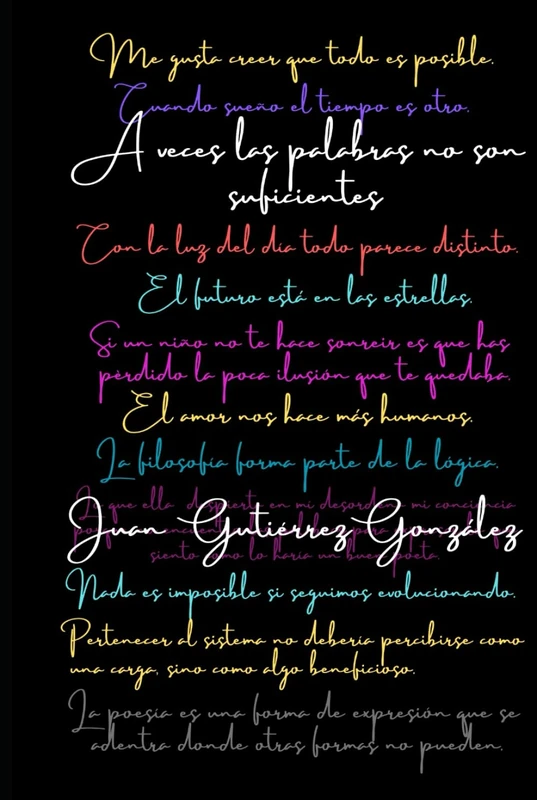 Me gusta creer que todo es posible.
Cuando sueño el tiempo es otro.
A veces las palabras no son
suficientes
Con la luz del día todo parece distinto.
El futuro está en las estrellas.
Si un niño no te hace sonreir es que has
pérdido la poca ilusión que te quedaba.
El amor nos hace más humanos.
La filosofía forma parte de la lógica.
Lo que ella despierta en mi desordena mi conciencia
Juan Gutiérrez González
siento como lo haría un buen poeta.
Nada es imposible si seguimos evolucionando.
Pertenecer al sistema no debería percibirse como
una carga, sino como algo beneficioso.
La poesía es una forma de expresión que se
adentra donde otras formas no pueden.